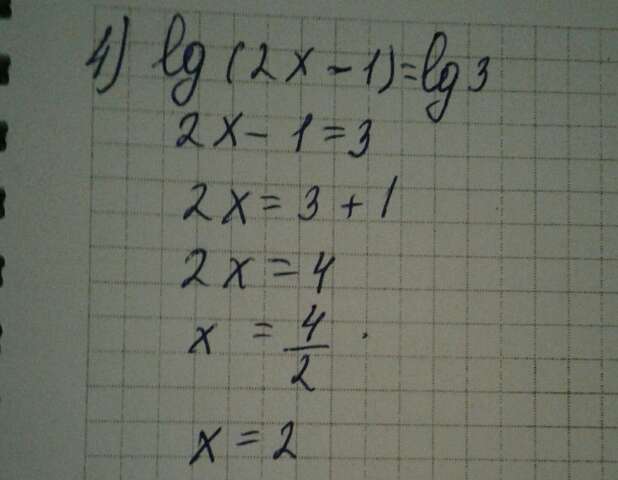 4) lg(2x-1)=lg3
2x-1=3
2x=3+1
2x=4
x = 4/2
x=2